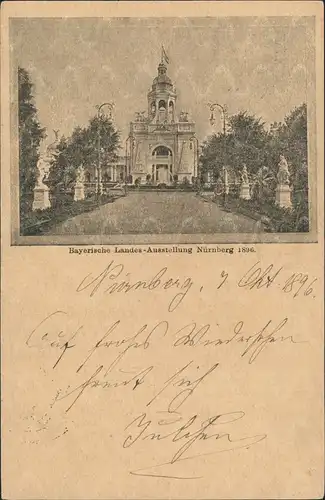 Bayerische Landes-Ausstellung Nürnberg 1896.
Nürnberg, 7 Okt. 1896.
Auf frohes Wiedersehen
freut sich
Julchen